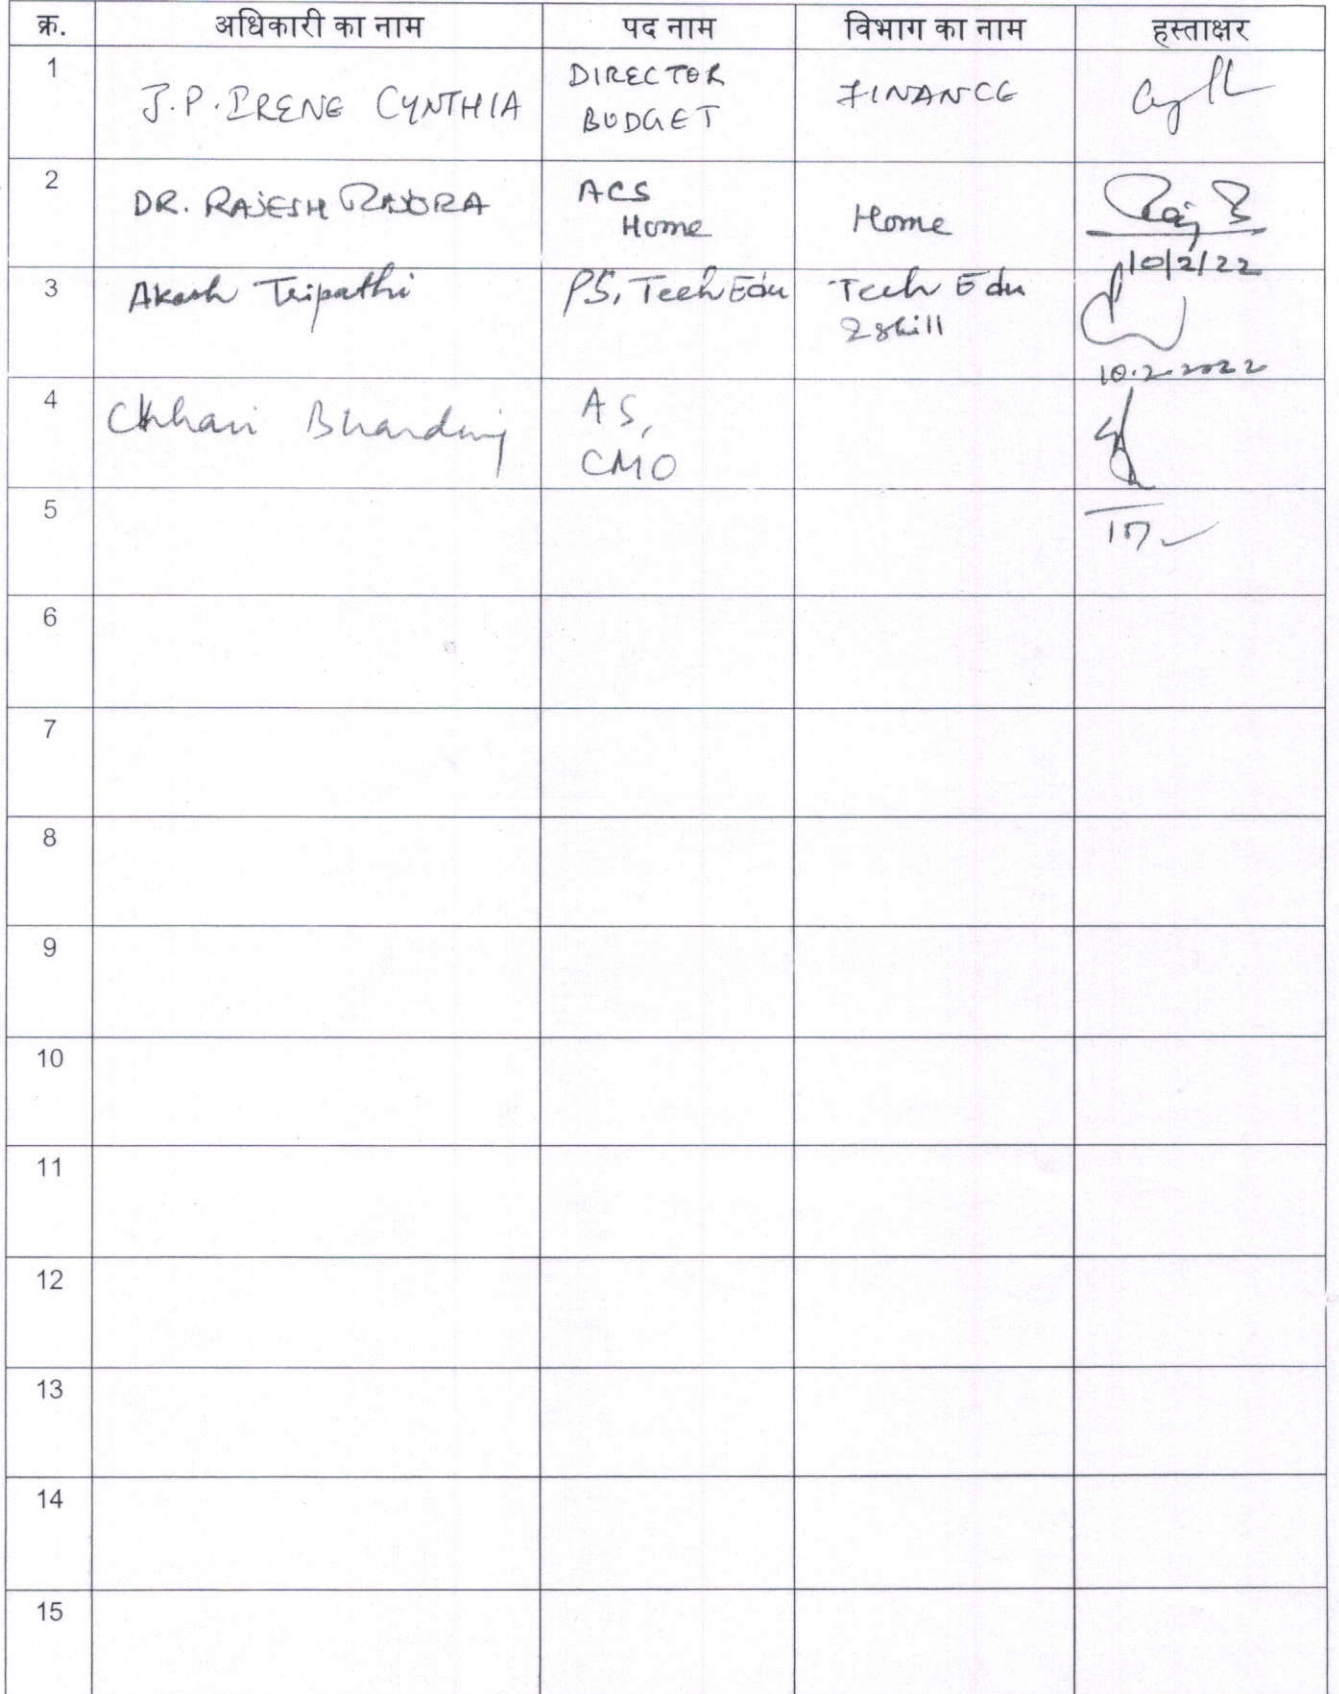 क्र. अधिकारी का नाम पद नाम विभाग का नाम हस्ताक्षर
1 J.P. IRENE CYNTHIA DIRECTOR BUDGET FINANCE
2 DR. RAJESH RAJORA ACS Home Home
10/2/22
3 Akash Tripathi PS, Tech Edu Tech Edu & skill
10.2.2022
4 Chhavi Bhardwaj AS, CMO
5
6
7
8
9
10
11
12
13
14
15